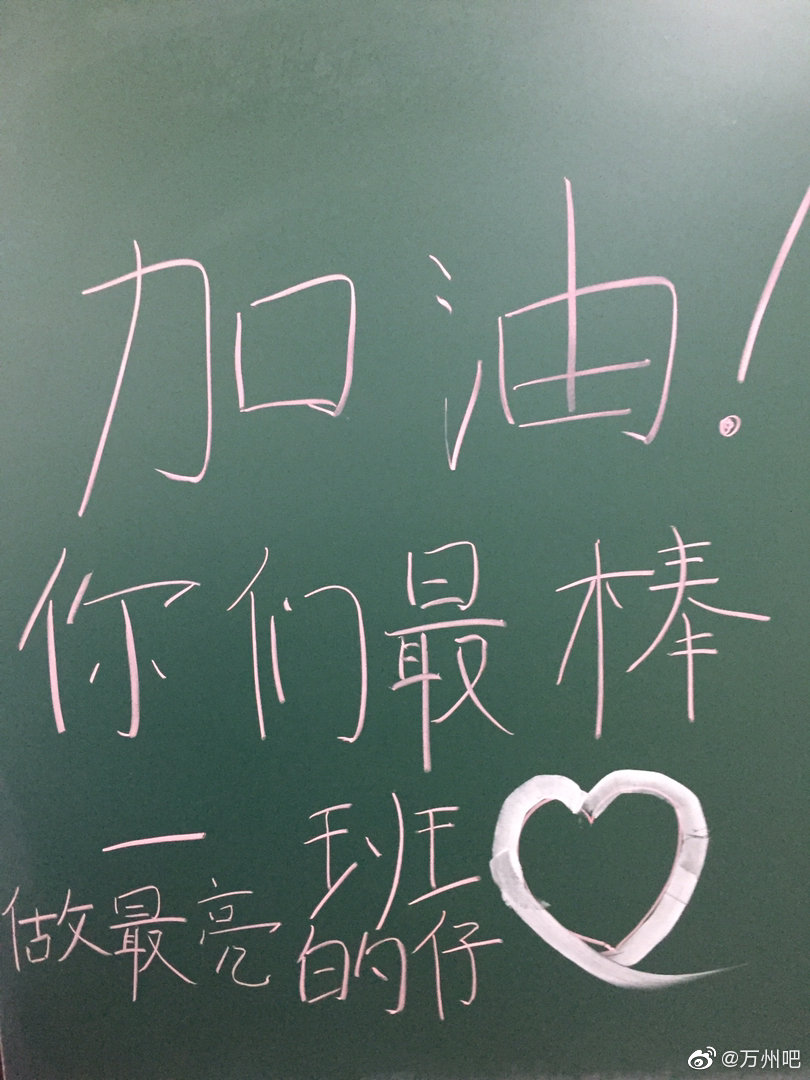 加油！
你们最棒
一班
做最亮的仔
@万州吧